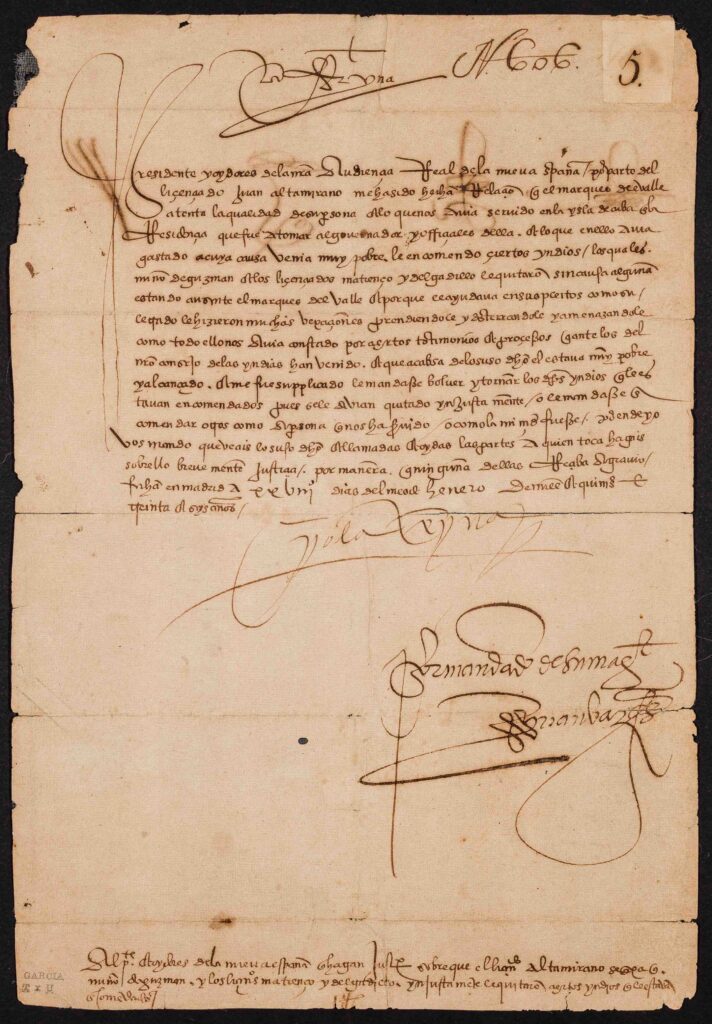 La Reyna
N. 606.
5.
Presidente y oydores de la nr̃a Audiençia Real de la nueva España / por parte del
liçençiado Juan altamirano me ha sido hecha Relaçiõ q̃ el marques del valle
atenta la qualidad de su persona & lo que nos Avia servido en la ysla de cuba & la
Residençia que fue a tomar al governador y offiçiales della. & lo que en ello Avia
gastado a cuya causa venia muy pobre. le encomendo çiertos yndios / los quales
nuño de guzman & los liçençiados matienço y delgadillo le quitarõ sin causa alguna
estando ausente el marques del valle & porque le ayudava en sus pleitos como su
letrado le hizieron muchas vexaçiones prendiendole y desterrandole y amenazandole
como todo ello nos Avia constado por çiertos testimonios & proçessos q̃ ante los del
nr̃o consejo de las yndias han venido. & que a cabsa de lo suso dho el estava muy pobre
y alcançado. & me fue supplicado le mandasse bolver y tornar los dhos yndios q̃ le es
tavan encomendados pues se le Avian quitado ynjusta mente / o le mandasse en
comendar otros como a persona q̃ nos ha servido / o como la mi md̃ fuesse. por ende yo
vos mando que veais lo suso dho & llamadas & oydas las partes A quien toca hagais
sobrello breve mente justiçia. por manera. q̃ ninguna dellas Reçiba Agravio /
fecha en madrid A xxviii dias del mes de henero de mill & quinis &
treinta & seys años /
yo la Reyna
Por mandado de su magt
Juan vazqz
Al pte & oydores de la nueva españa q̃ hagan Justa sobre que el liçendo Altamirano se quexa q̃
nuño de guzman. y los liçendos matienço y delgadillo. ynjustamẽte le quitarõ çiertos yndios q̃ le estavã
encomẽdados /
GARCIA